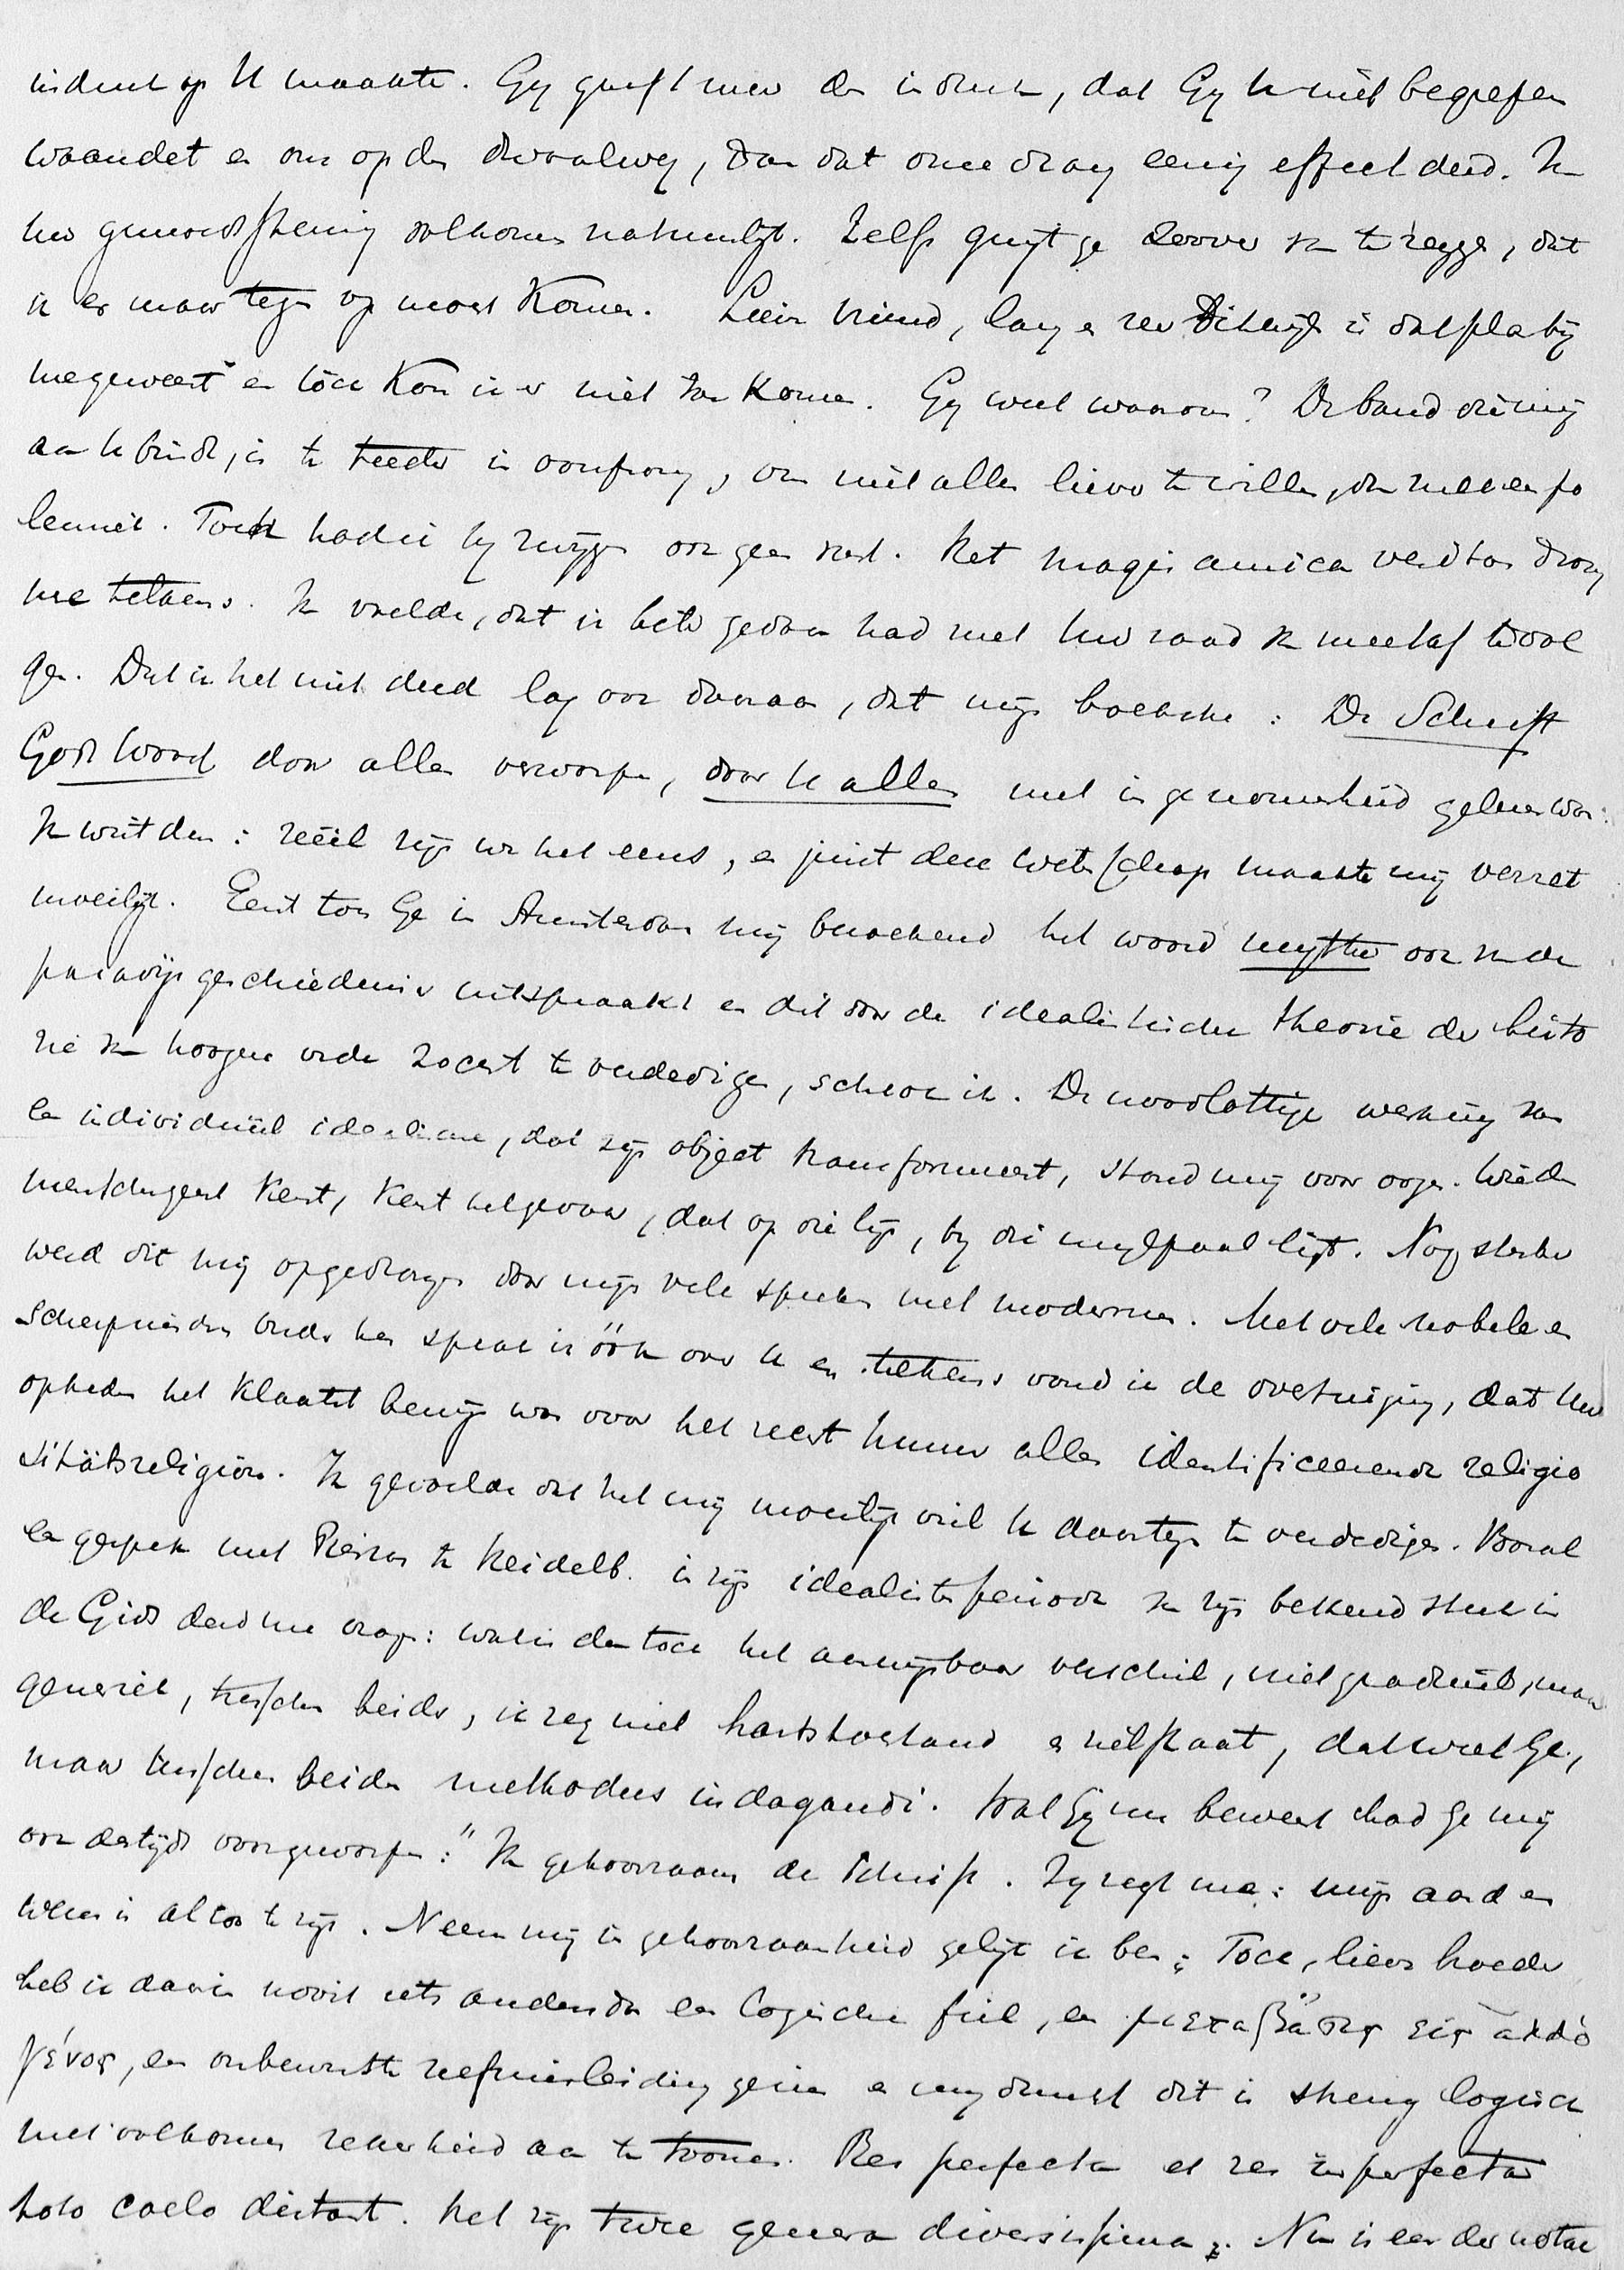 indruk op U maakte. Gij geeft meer den indruk, dat Gij U niet begrepen
waandet en ons op den dwaalweg, dan dat onze vraag eenig effect deed. Ik
uw gemoedsstemming volkomen natuurlijk. Zelfs gingt ge zoover van te zeggen, dat
ik er maar tegen op moest komen. Lieve vriend, lang en zeer dikwijls is dat plan bij
me geweest en toch kon ik er niet toe komen. Gij weet waarom? De band die mij
aan U bindt, is te teeder in oorsprong, om niet alles liever te willen, dan zulk een po
lemiek. Toch had ik bij zwijgen ook geen rust. Het magis amica veritas drong
me telkens. Ik voelde, dat ik beter gedaan had met uw raad van meetaf te vol
gen. Dat ik het niet deed lag ook daaraan, dat mijn boekske: De Schrift
Gods Woord door allen verworpen, door U alleen met ingenomenheid gelezen was:
Ik wist dus: reëel zijn we het eens, en juist deze wetenschap maakte mij verzet
moeilijk. Eerst toen Ge in Amsterdam mij bezoekend het woord mythe ook van de
paradijsgeschiedenis uitspraakt en dit door de idealistische theorie der histo
rie van hooger orde zocht te verdedigen, schrok ik. De noodlottige werking van
een individueel idealisme, dat zijn object transformeert, stond mij voor oogen. Wie den
menschengeest kent, kent het gevaar, dat op die lijn, bij die mijlpaal ligt. Nog sterker
werd dit mij opgedrongen door mijn vele spreken met modernen. Met vele nobele en
scherpzienden onder hen sprak ik óók over U en telkens vond ik de overtuiging, dat Uw
optreden het klaarst bewijs was voor het recht hunner alles identificeerende religio
sitätsreligion. Ik gevoelde dat het mij moeilijk viel U daartegen te verdedigen. Vooral
een gesprek met Pierson te Heidelb. in zijn idealisten periode van zijn bekend stuk in
de Gids deed me vragen: wat is dan toch het aanwijsbaar verschil, niet gradueel, maar
generiek, tusschen beide, ik zeg niet hartstoestand en zielstaat, dat weet Ge,
maar tusschen beider methodus indagandi. Wat Gij nu beweert had Ge mij
ook destijds voorgeworpen: "Ik gehoorzaam de Schrift. Zij zegt me: mijn aard en
wezen is alzoo te zijn. Neem mij in gehoorzaamheid gelijk ik ben; Toch, lieve broeder
heb ik daarin nooit iets anders dan een logische feil, een μεταβασις εἰς ἀλλὸ
γένος, een onbewuste zelfmisleiding gezien en mij dunkt dit is streng logisch
met volkomen zekerheid aan te toonen. Res perfecta et res imperfecta
toto caelo distant. Het zijn twee genera diversissima. Nu is een der notae